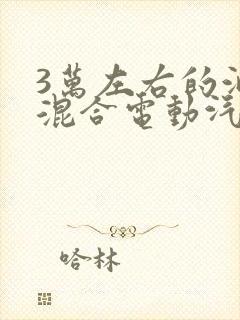 3萬左右的
混合電動汽
哈林